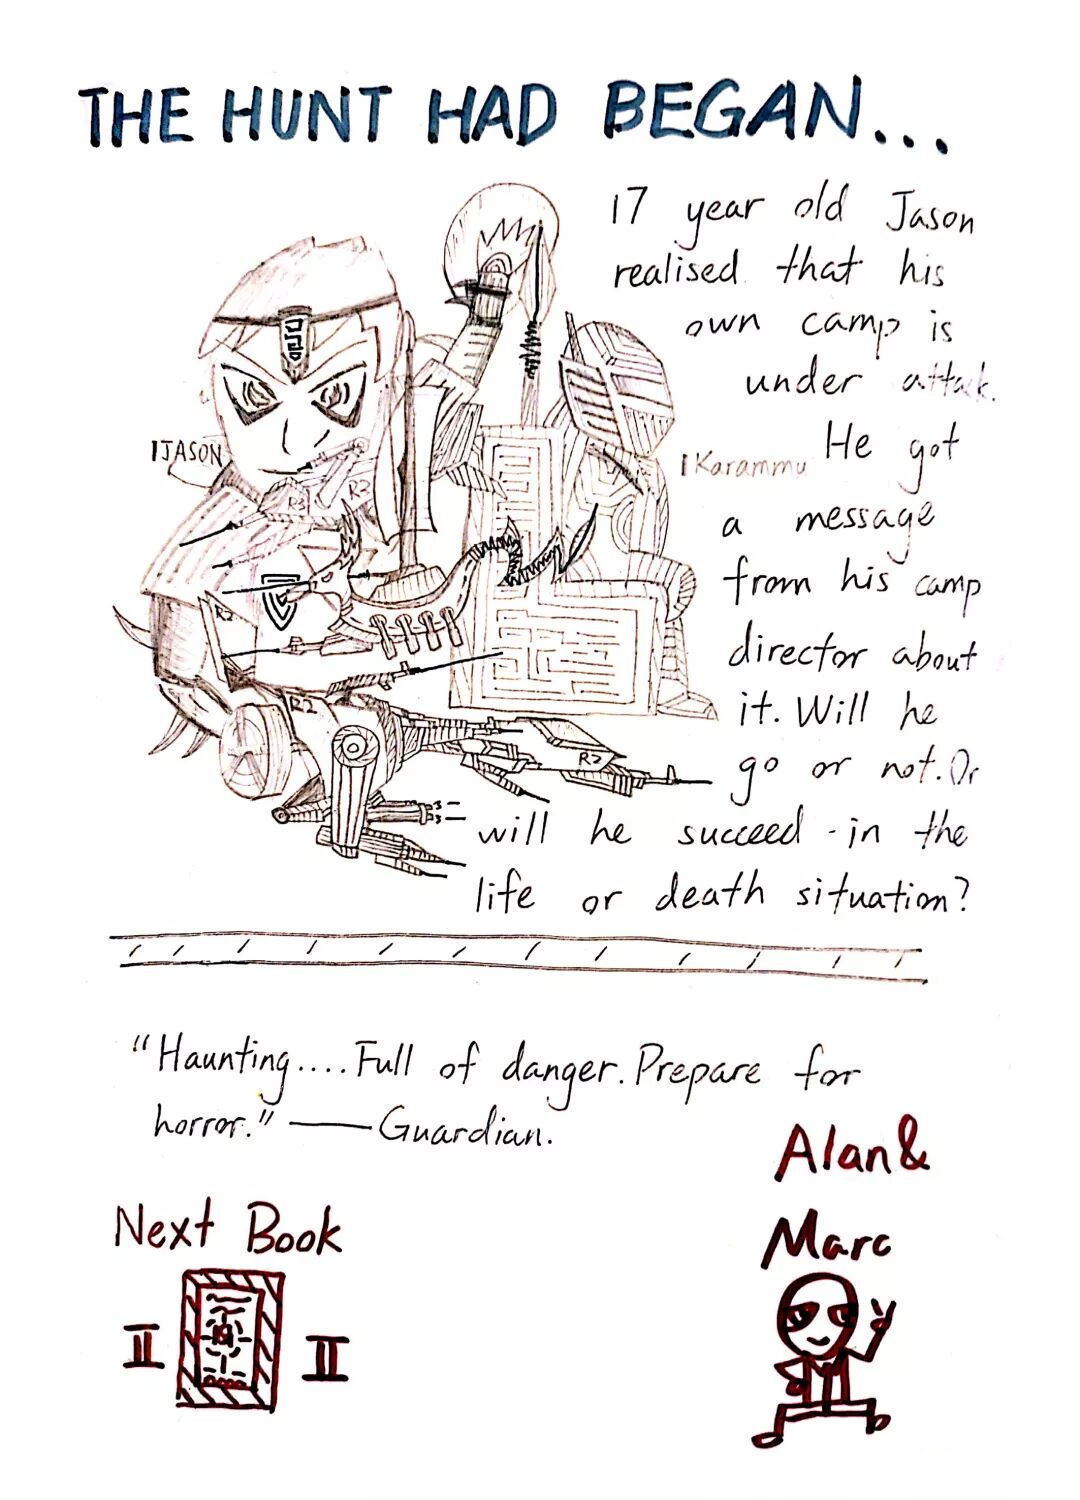 THE HUNT HAD BEGAN...
17 year old Jason
realised that his
own camp is
under attack.
He got
a message
from his camp
director about
it. Will he
go or not. Or
will he succeed in the
life or death situation?
JASON
Karammu
R3
R2
R2
R2
R2
"Haunting.... Full of danger. Prepare for
horror." — Guardian.
Alan &
Marc
Next Book
II
II